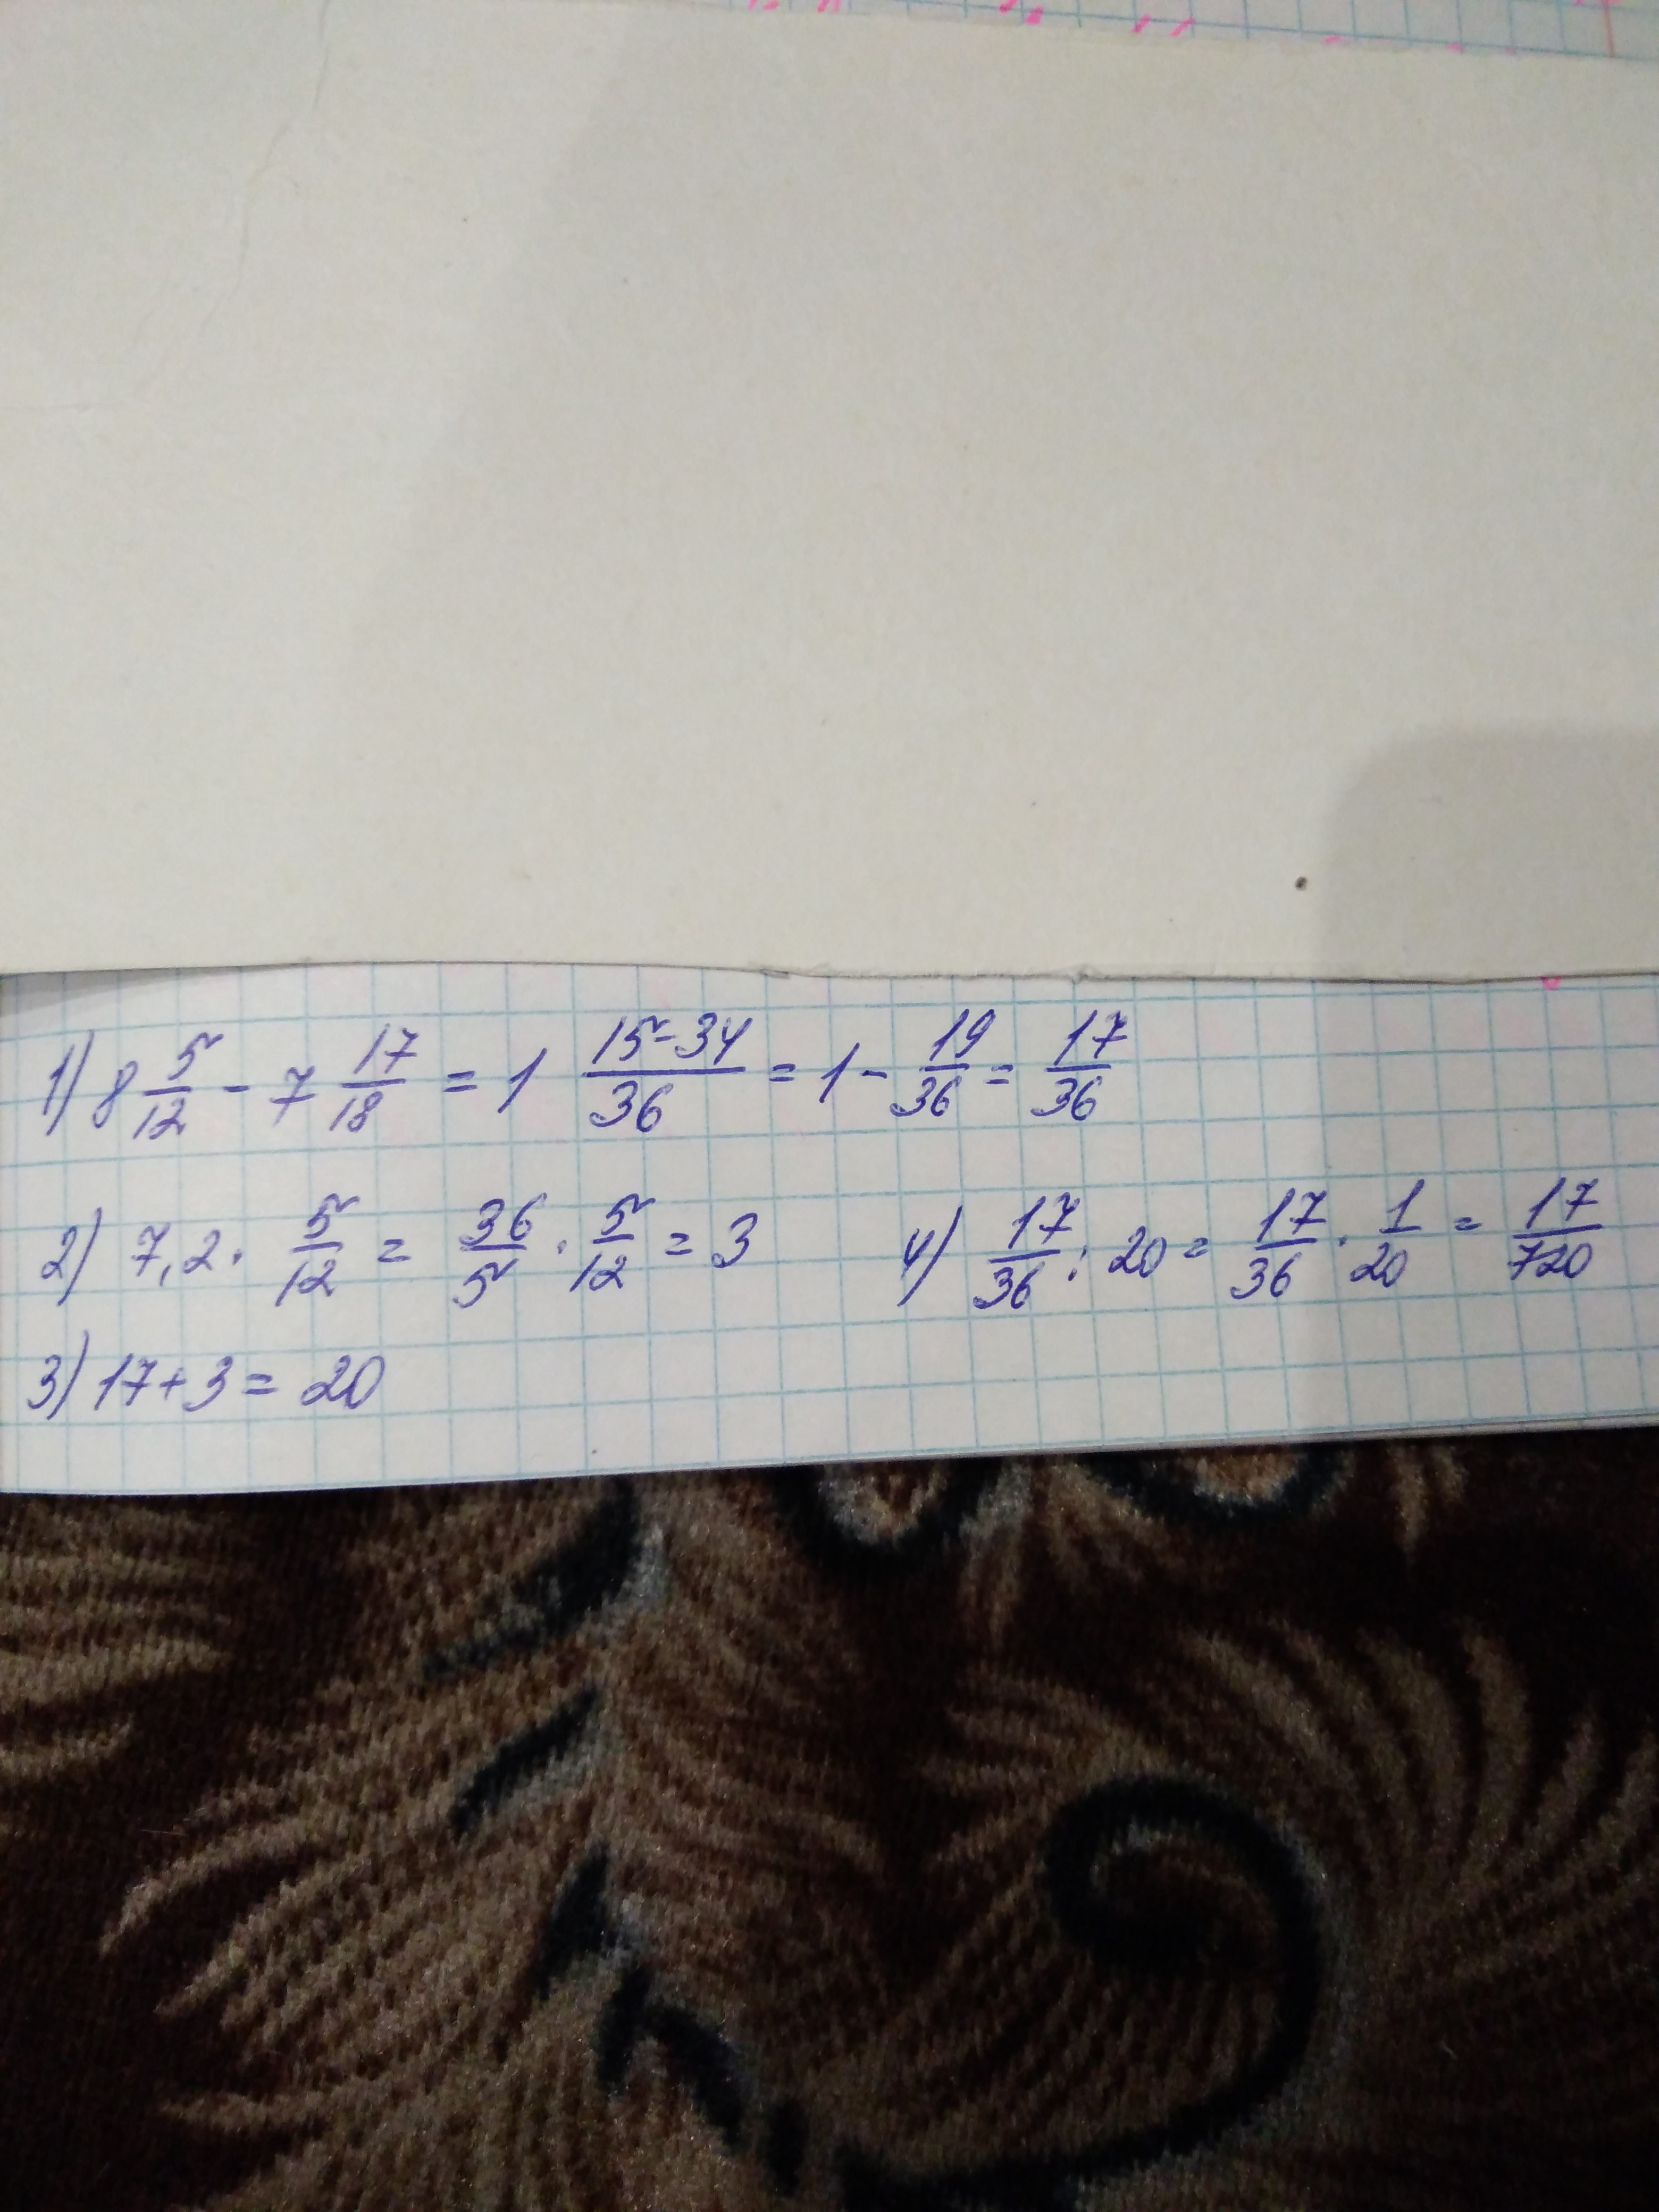 1) 8 5/12 - 7 17/18 = 1 (15-34)/36 = 1 - 19/36 = 17/36
2) 7,2 · 5/12 = 36/5 · 5/12 = 3
4) 17/36 : 20 = 17/36 · 1/20 = 17/720
3) 17+3 = 20